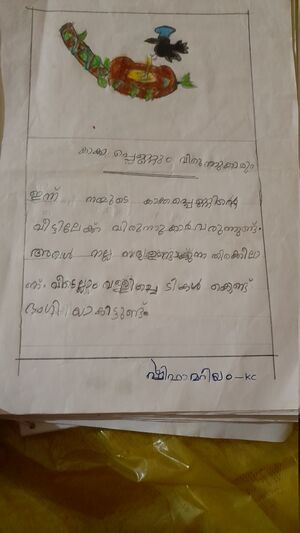 കാക്ക പ്പെണ്ണും വിരുന്നുക്കാരും
ഇന്ന് നമ്മുടെ കാക്കപ്പെണ്ണിന്റെ
വീട്ടിലേക്ക് വിരുന്നുക്കാർ വരുന്നുണ്ട്.
അവൾ നല്ല ഉണ്ടാക്കുന്ന തിരക്കിലാ
ണ്. വീടെല്ലും വള്ളിച്ചെ ടികൾ കൊണ്ട്
ഭംഗി യാകിട്ടുണ്ട്.
ഷിഫാ മറിയം - KC